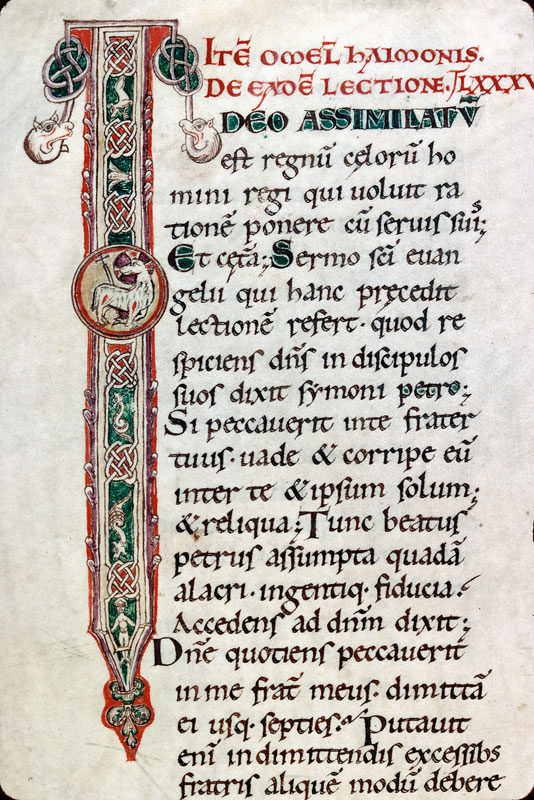 ITĒ OMEL̄ HAIMONIS.
DE EADĒ LECTIONE. LXXXV
IDEO ASSIMILATŪ
est regnū cęlorū ho
mini regi qui uoluit ra
tionē ponere cū seruis suis;
Et cęta; Sermo scī euan
gelii qui hanc pręcedit
lectionē refert· quod re
spiciens dn̄s in discipulos
suos dixit symoni petro;
Si peccauerit inte frater
tuus· uade & corripe eū
inter te & ipsum solum;
& reliqua; Tunc beatus
petrus assumpta quadā
alacri· ingentiq· fiducia·
Accedens ad dn̄m dixit;
Dn̄e quotiens peccauerit
in me frat̄ meus· dimittā
ei usq· septies· Putauit
enī in dimittendis excessibs
fratris aliquē modū debere